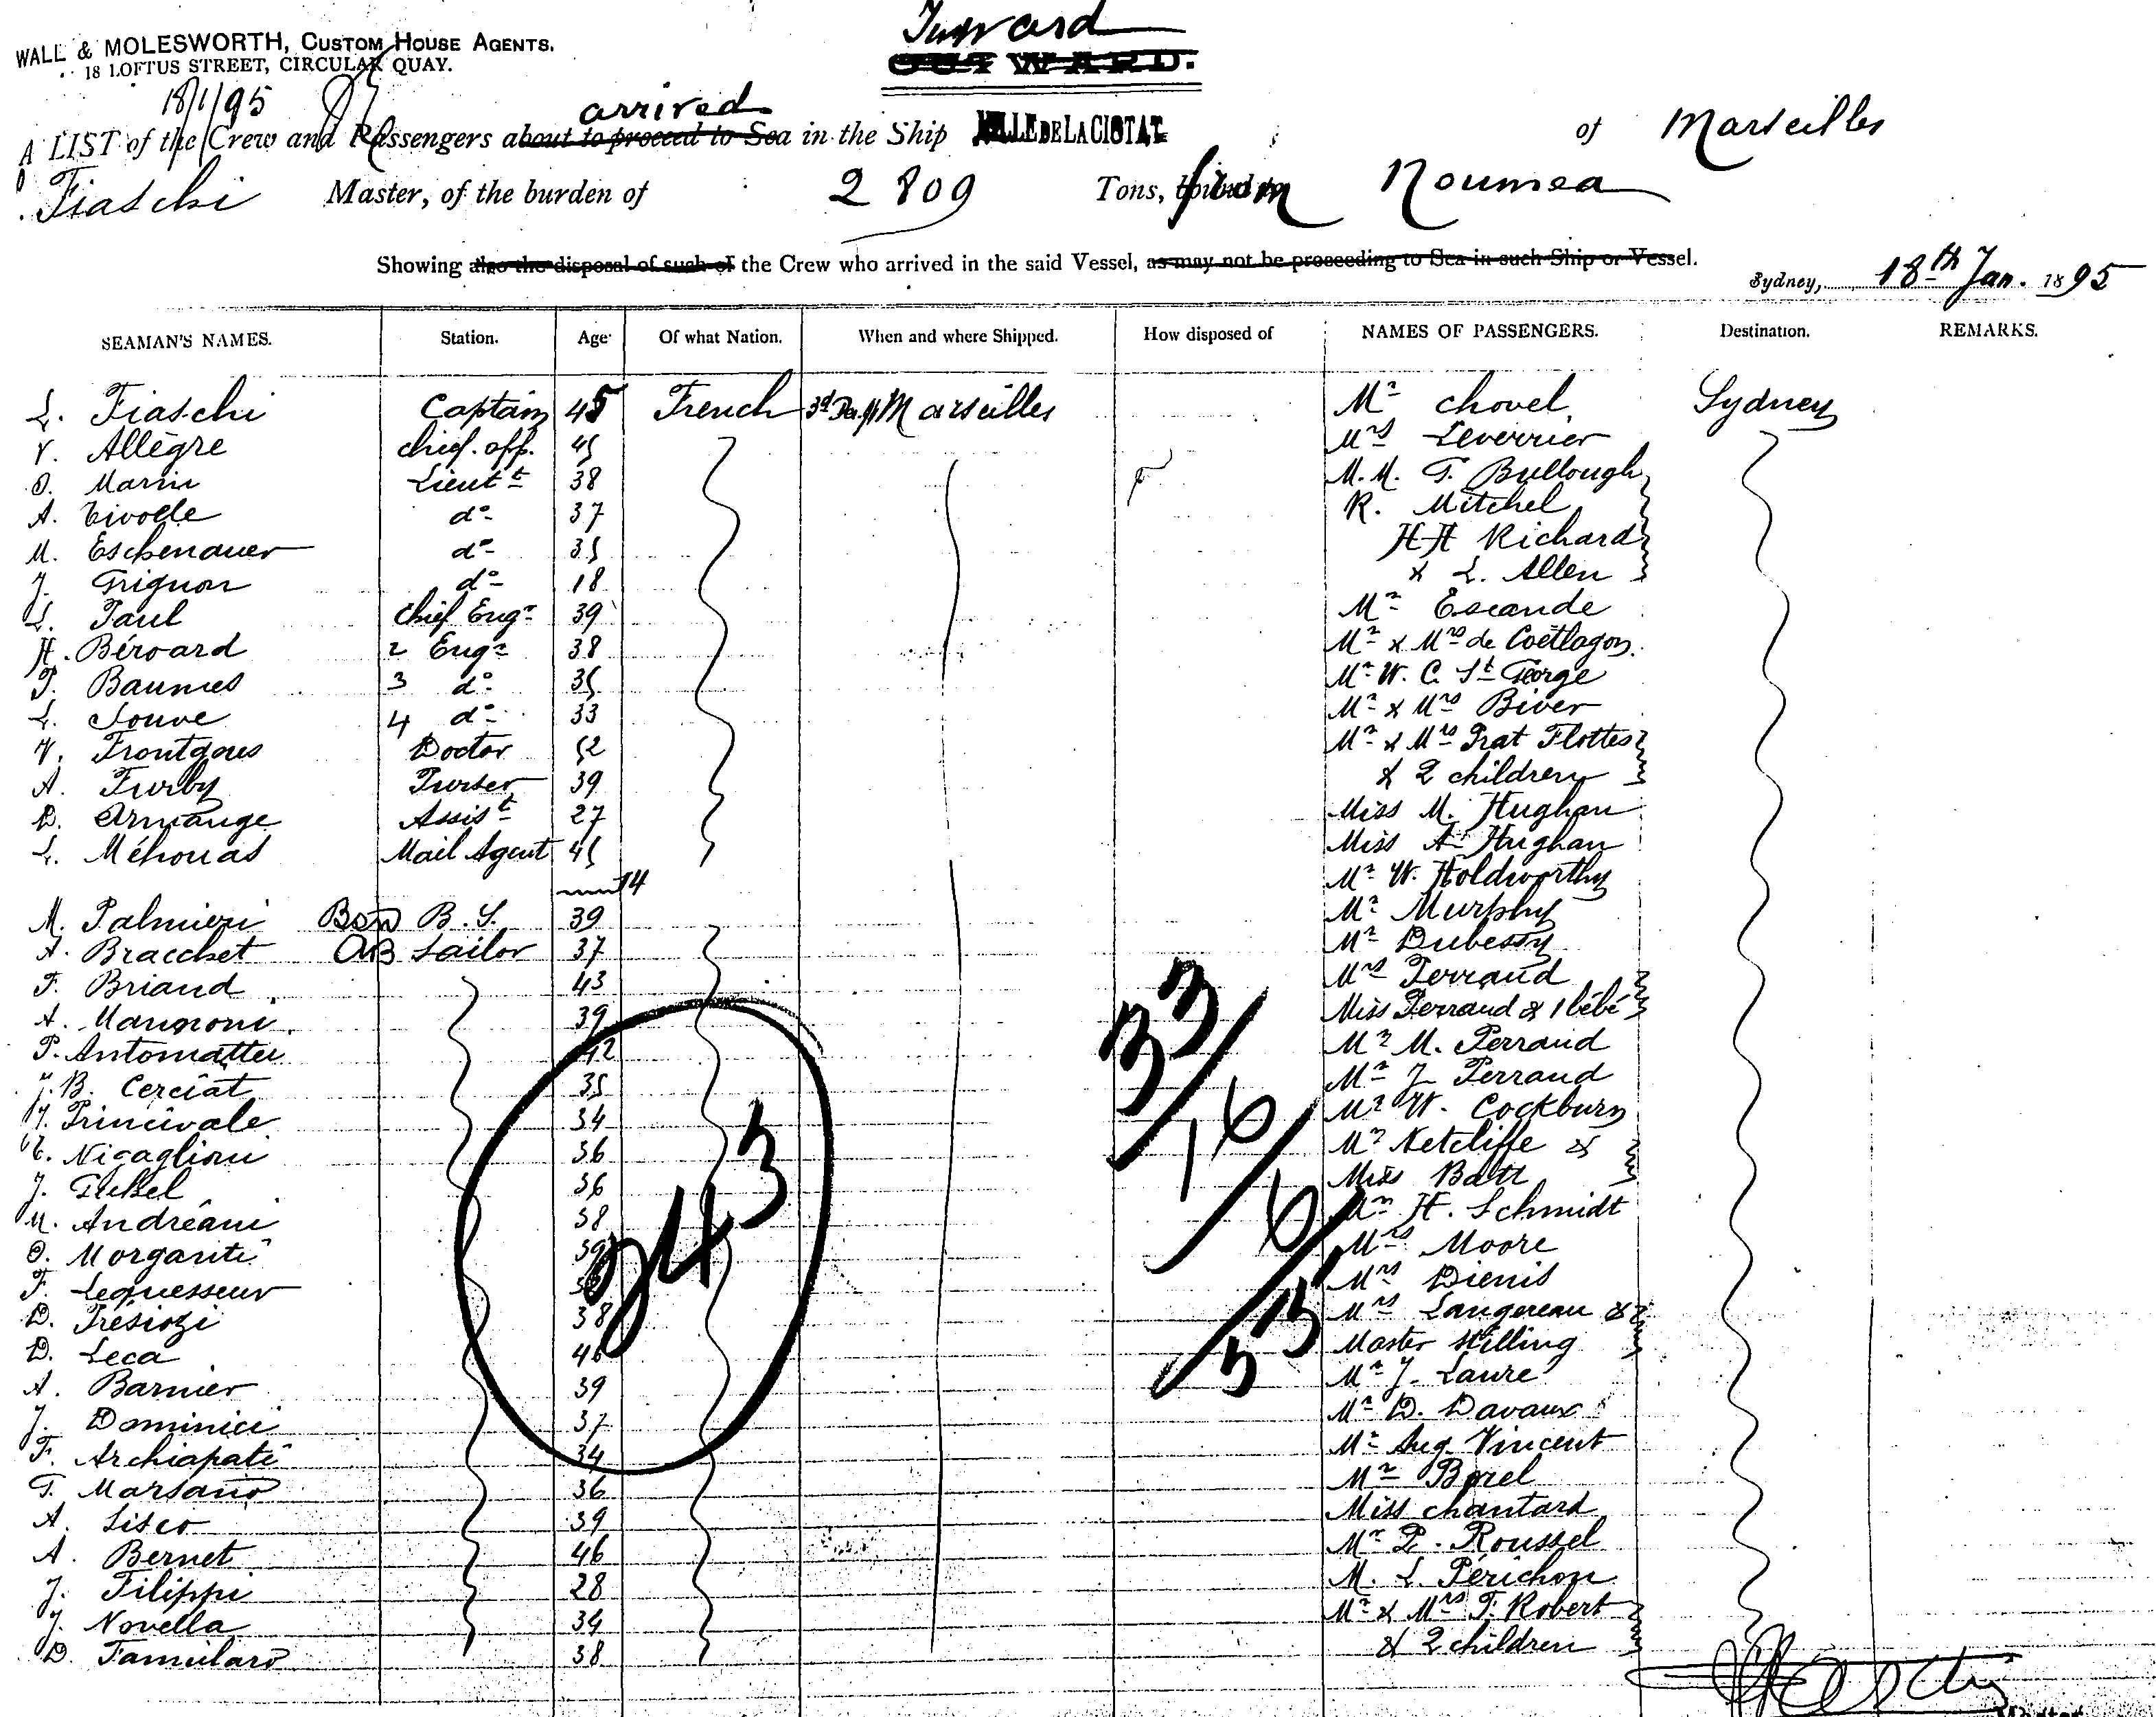 Inward
WALL & MOLESWORTH, CUSTOM HOUSE AGENTS.
OUTWARD.
18 LOFTUS STREET, CIRCULAR QUAY.
18/1/95
arrived
A LIST of the Crew and Passengers about to proceed to Sea in the Ship VILLE DE LA CIOTAT of Marseilles
Fiaschi Master, of the burden of 2809 Tons, from Noumea
Showing also the disposal of such of the Crew who arrived in the said Vessel, as may not be proceeding to Sea in such Ship or Vessel.
Sydney, 18th Jan. 1895
SEAMAN'S NAMES. Station. Age Of what Nation. When and where Shipped. How disposed of NAMES OF PASSENGERS. Destination. REMARKS.
L. Fiaschi Captain 45 French 3d Marseilles Mr Chovel Sydney
V. Allègre chief. off. 45 Mrs Leverrier
O. Marin Lieutt 38 M.M. T. Bullough
A. Tivolle do 37 R. Mitchel
M. Eschenauer do 35 HH Richard
J. Grignon do 18 & L. Allen
L. Paul Chief Engr 39 Mr Escande
H. Béroard 2 Engr 38 Mr & Mrs de Coëtlagon
P. Baumes 3 do 35 Mr W. C. St George
L. Jouve 4 do 33 Mr & Mrs Biver
V. Frontgous Doctor 52 Mr & Mrs Prat Flottes
A. Furby Purser 39 & 2 children
D. Armange Assist 27 Miss M. Hughan
L. Méhouas Mail Agent 45 Miss A. Hughan
14 Mr W. Holdworthy
M. Palmieri Bsn B.S. 39 Mr Murphy
A. Bracchet AB Sailor 37 Mr Dubessy
F. Briand 43 Mrs Perraud
A. Mannoni 39 Miss Perraud & 1 bébé
P. Antomattei 42 Mr M. Perraud
J.B. Cerciat 35 Mr J. Perraud
Y. Princivale 34 Mr W. Cockburn
Nicaglioni 36 Mr Netcliffe &
J. 36 Miss Batt
M. Andréani 38 Mr H. Schmidt
O. Morganti 39 Mrs Moore
F. Lequesseur Mrs Dienis
D. Trésiozi 38 Mrs Langereau &
D. Leca 46 Master Hilling
A. Barnier 39 Mr J. Laure
J. Dominici 37 Mr D. Davaux
F. Archiapati 34 Mr Aug. Vincent
T. Marsano 36 Mr Borel
A. Lisco 39 Miss Chantard
A. Bernet 46 Mr P. Roussel
J. Filippi 28 M. L. Périchon
J. Novella 34 Mr & Mrs T. Robert
D. Famularo 38 & 2 children
243
33
16
6